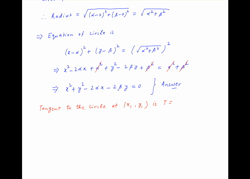 ∴ Radius = √((α-0)² + (β-0)²) = √(α²+β²)
⇒ Equation of circle is
(x-α)² + (y-β)² = (√(α²+β²))²
⇒ x² - 2αx + α² + y² - 2βy + β² = α² + β²
⇒ x² + y² - 2αx - 2βy = 0 } Answer
Tangent to the circle at (x₁, y₁) is T=